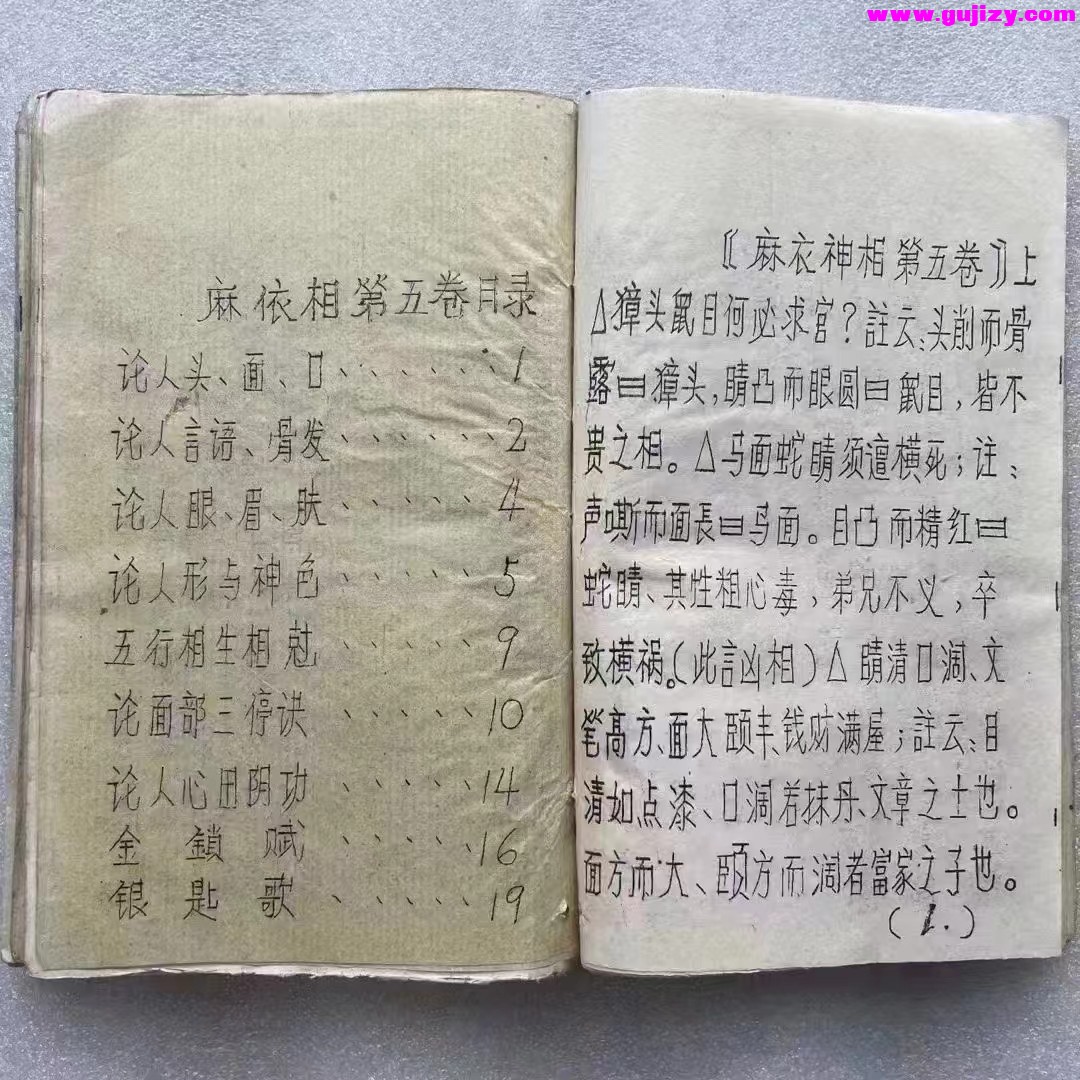 www.gujizy.com
麻依相第五卷目录
论人头、面、口、、、、、、1
论人言语、骨发、、、、、、2
论人眼、眉、肤、、、、、4
论人形与神色、、、、、5
五行相生相尅、、、、、9
论面部三停诀、、、、、10
论人心田阴功、、、、、14
金鎖赋、、、、、16
银匙歌、、、、、、19
《麻衣神相第五卷》上
△獐头鼠目何必求官？註云:头削而骨
露曰獐头,睛凸而眼圆曰鼠目，皆不
贵之相。△马面蛇睛须遭横死；注：
声嘶而面長曰马面。目凸而精红曰
蛇睛、其性粗心毒，弟兄不义，卒
致横祸。(此言凶相)△睛清口阔、文
笔高方、面大颐丰、钱财满屋；註云:目
清如点漆、口阔若抹丹、文章之士也。
面方而大、颐方而阔者富家之子也。
(1.)